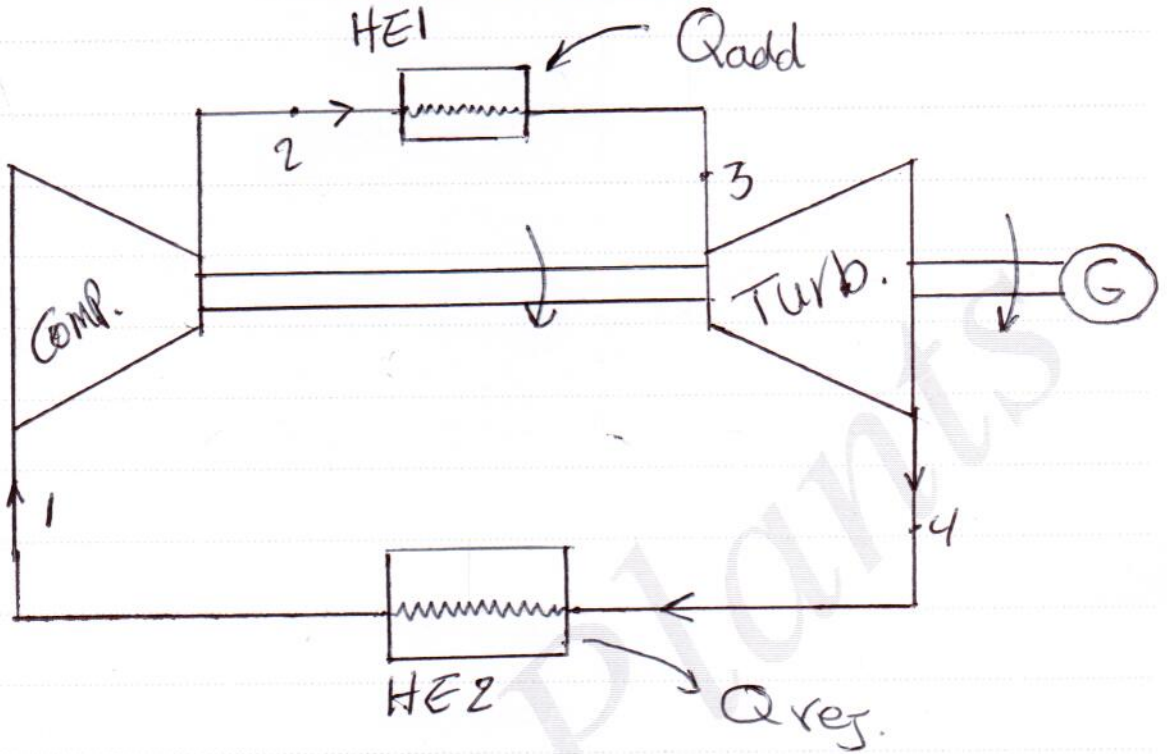 HE1
Qadd
2
3
COMP.
Turb.
G
1
4
HE2
Qrej.
Plants